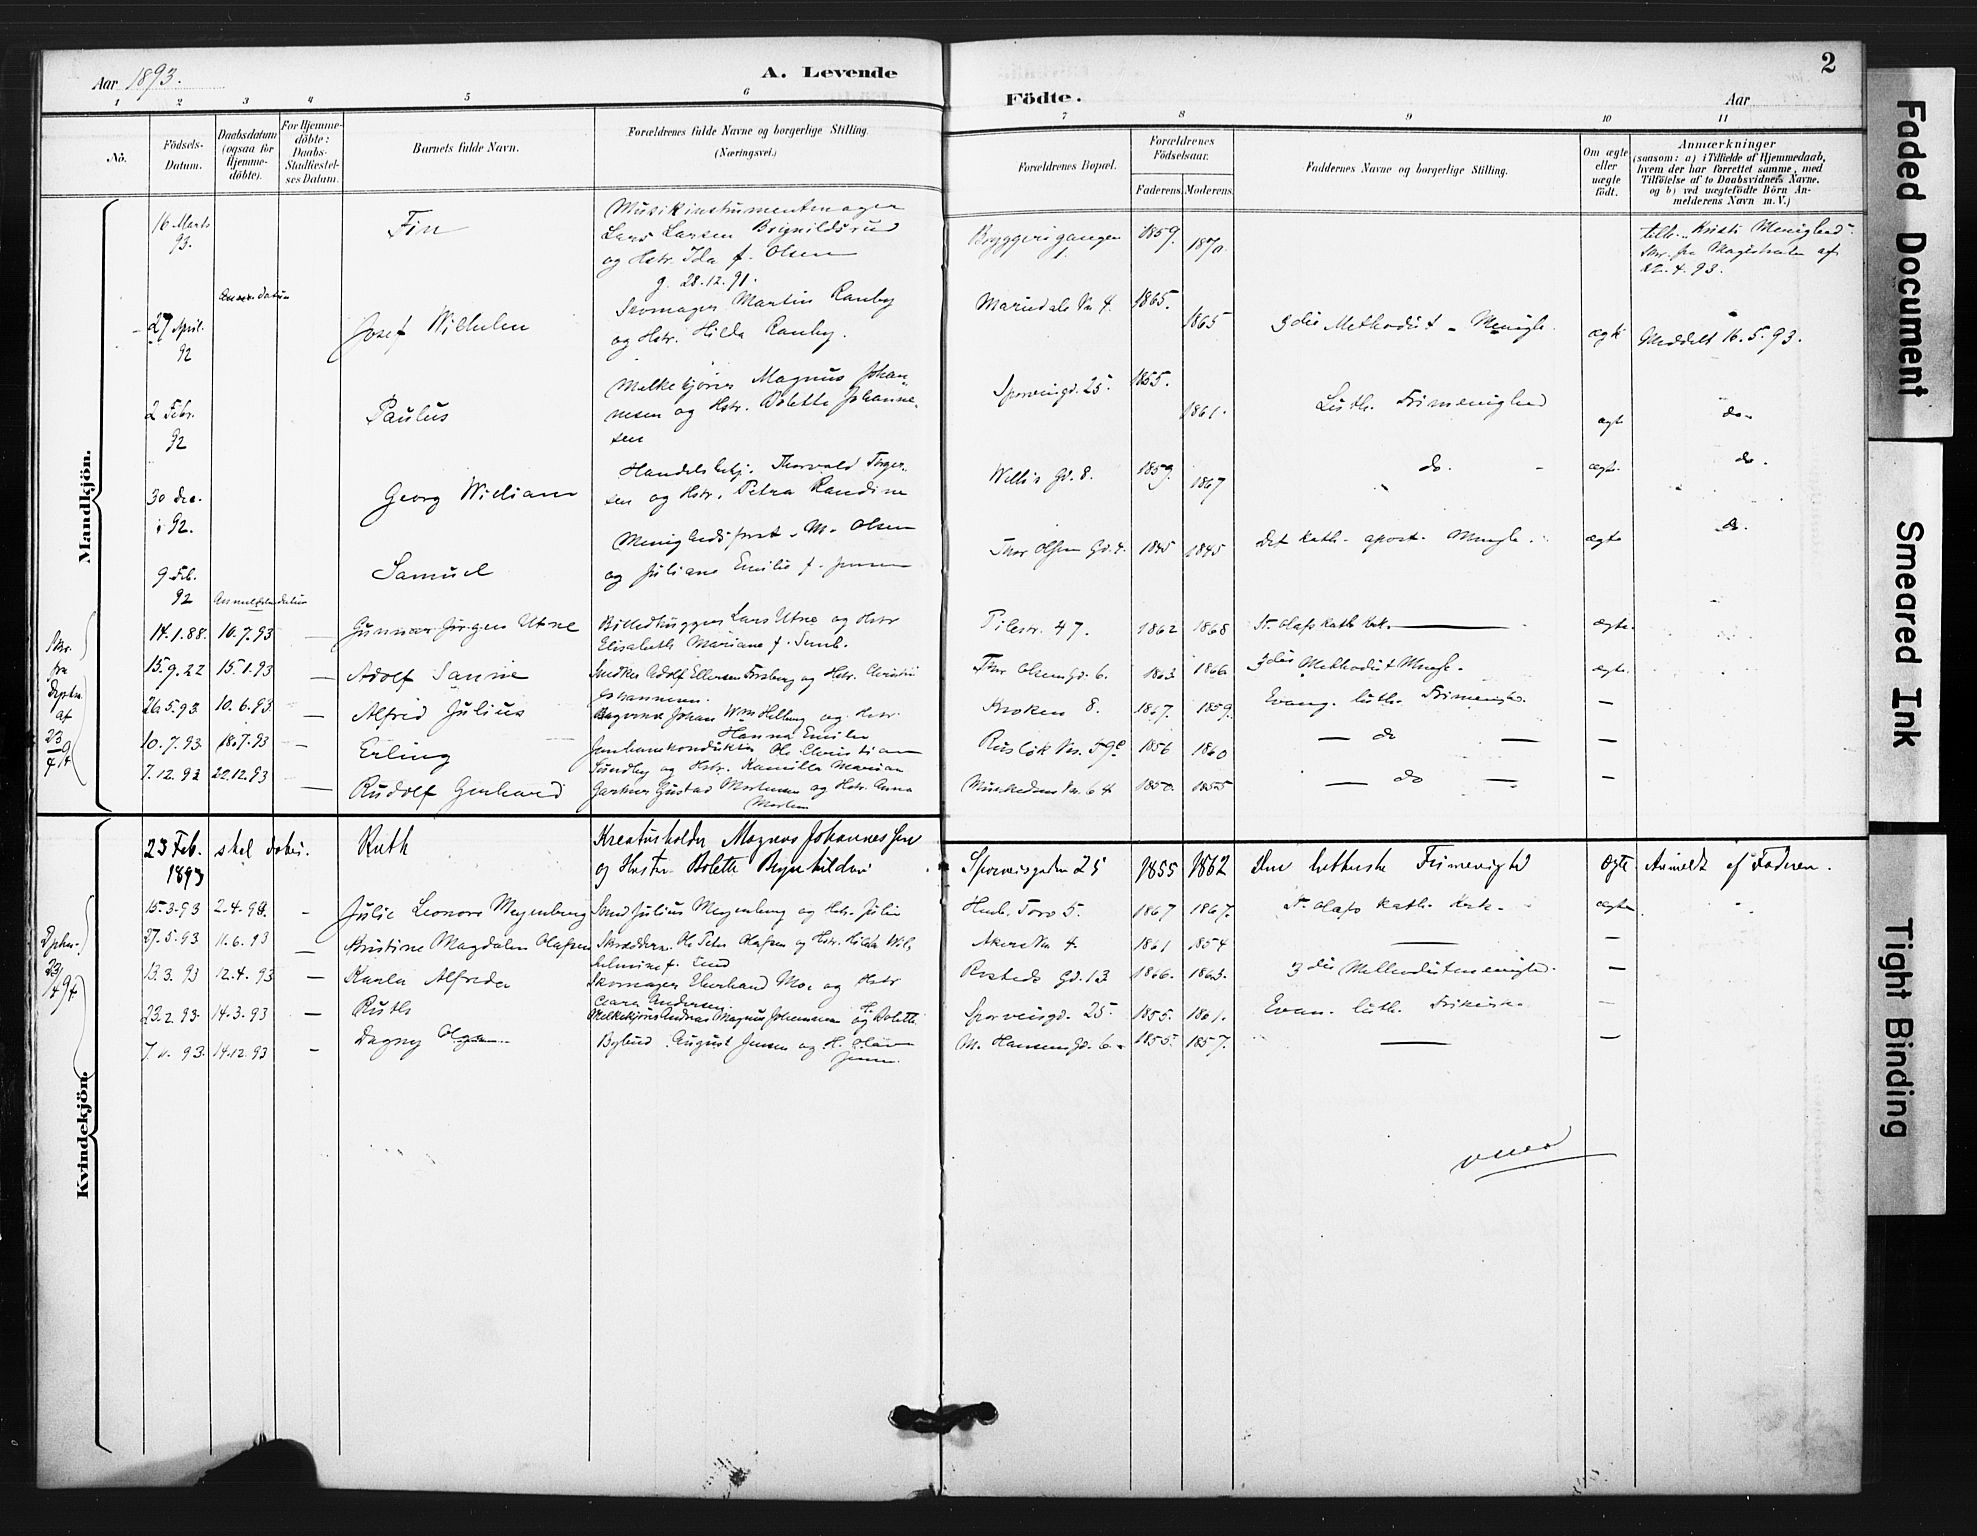 Aar 1893.
A. Levende
Födte.
Aar
2
1 2 3 4 5 6 7 8 9 10 11
No.
Födsels-
Datum.
Daabsdatum
(ogsaa for
Hjemme-
döbte).
For Hjemme-
döbte:
Daabs-
Stadfæstel-
ses Datum.
Barnets fulde Navn.
Forældrenes fulde Navne og borgerlige Stilling.
(Næringsvei.)
Forældrenes Bopæl.
Forældrenes
Födselsaar.
Faderens. Moderens.
Faddernes Navne og borgerlige Stilling.
Om ægte
eller
uægte
födt.
Anmærkninger
(saasom: a) i Tilfælde af Hjemmedaab,
hvem der har forrettet samme, med
Tilföielse af to Daabsvidners Navne.
og b) ved uægtefödte Börn An-
melderens Navn m. V.)
Mandkjön.
16 Marts
93.
Fin
Musikinstrumentmager
Lars Larsen Brynildsrud
og Hstr. Ida f. Olsen
g. 28.12.91.
Bryggerigangen
1.
1859. 1870.
Skr. fra Magistraten af
22.4.93.
27 April
92
Josef Wilhelm
Skomager Martin Ranby
og Hstr. Hilda Ranby.
Maridals Vn 4.
1865. 1865
3die Methodist - Menigh.
ægte
Meddelt 16.5.93.
2 Febr.
92
Paulus
Melkekjører Magnus Johan-
nesen og Hstr. Bolette Johanne-
sen
Sporveisgd. 25.
1855. 1861.
Luth. Frimenighed
ægte
do.
30 Dec.
92.
Georg William
Handelsbetj. Thorvald Torger-
sen og Hstr. Petra Randine
Wellis Gd. 8.
1859. 1867
do.
ægte
do.
9 Feb.
92
Samuel
Menighedsforst. M. Olsen
og Juliane Emilie f. Jensen
Thor Olsen Gd. 4.
1845 1845
Det kath. apost. Mengh.
ægte
do.
14.1.88. 10.7.93
Gunnar Jörgen Utne
Billedhugger Lars Utne og Hstr
Elisabeth Mariane f.
Pilestr. 47.
1862 1868
St. Olafs kath. Kirk.
ægte.
15.9.22 15.1.93
Adolf Sanne
Snedker Adolf Ellersen Forsberg og Hstr. Christine
Johannesen.
Thor Olsens Gd. 6.
1863 1866
3die Methodist Mengh.
ægte.
26.5.93. 10.6.93
Alfred Julius
Johan Wm Hellberg og Hstr.
Hanna Emilie
Kroken 8.
1867. 1859.
Evang. luth. Frimenighed.
10.7.93. 18.7.93
Erling
Jernbanekonduktör Ole Christian
Sundby og Hstr. Kamilla Marian
Rusløk Vn. 59c
1856 1860
do
7.12.92 22.12.93
Rudolf Gerhard
Gartner Gustav Mortensen og Hstr. Anna
Morten
1850. 1855
do
Kvindekjön.
23 Feb.
1893
skal døbes.
Ruth
Kreaturholder Magnus Johannessen
og Hustru Bolette Brynhildsen
Sporveisgaden 25
1855 1862
Den lutherske Frimenighed
Ægte
Anmeldt af Faderen.
15.3.93 2.4.93.
Julie Leonore Meyenburg
Smed Julius Meyenburg og Hstr. Julie
Hmb. Torv 5.
1867 1867.
St. Olafs kath. Kirk.
ægte
27.5.93 11.6.93
Kristine Magdalen Olafsen
Skrædderm. Ole Peter Olafsen og Hstr. Hilda Wil-
helmine f. Lund
Akers Vn 4.
1861 1854
13.3.93 12.4.93
Karla Alfreda
Skomager Eberhard Moe og Hstr
Clara Andersen.
Rosteds Gd. 13
1866. 1863.
3die Methodistmenighed.
23.2.93. 14.3.93
Ruth
Melkekjører Andreas Magnus Johannesen og H. Bolette
Sporveisgd. 25.
1855. 1861.
Evan. luth. Frikirke.
7.11.93. 14.12.93
Dagny Olga
Bybud August Jensen og H.
Jensen.
M. Hansens Gd. 6.
1855. 1857.
Faded Document
Smeared Ink
Tight Binding